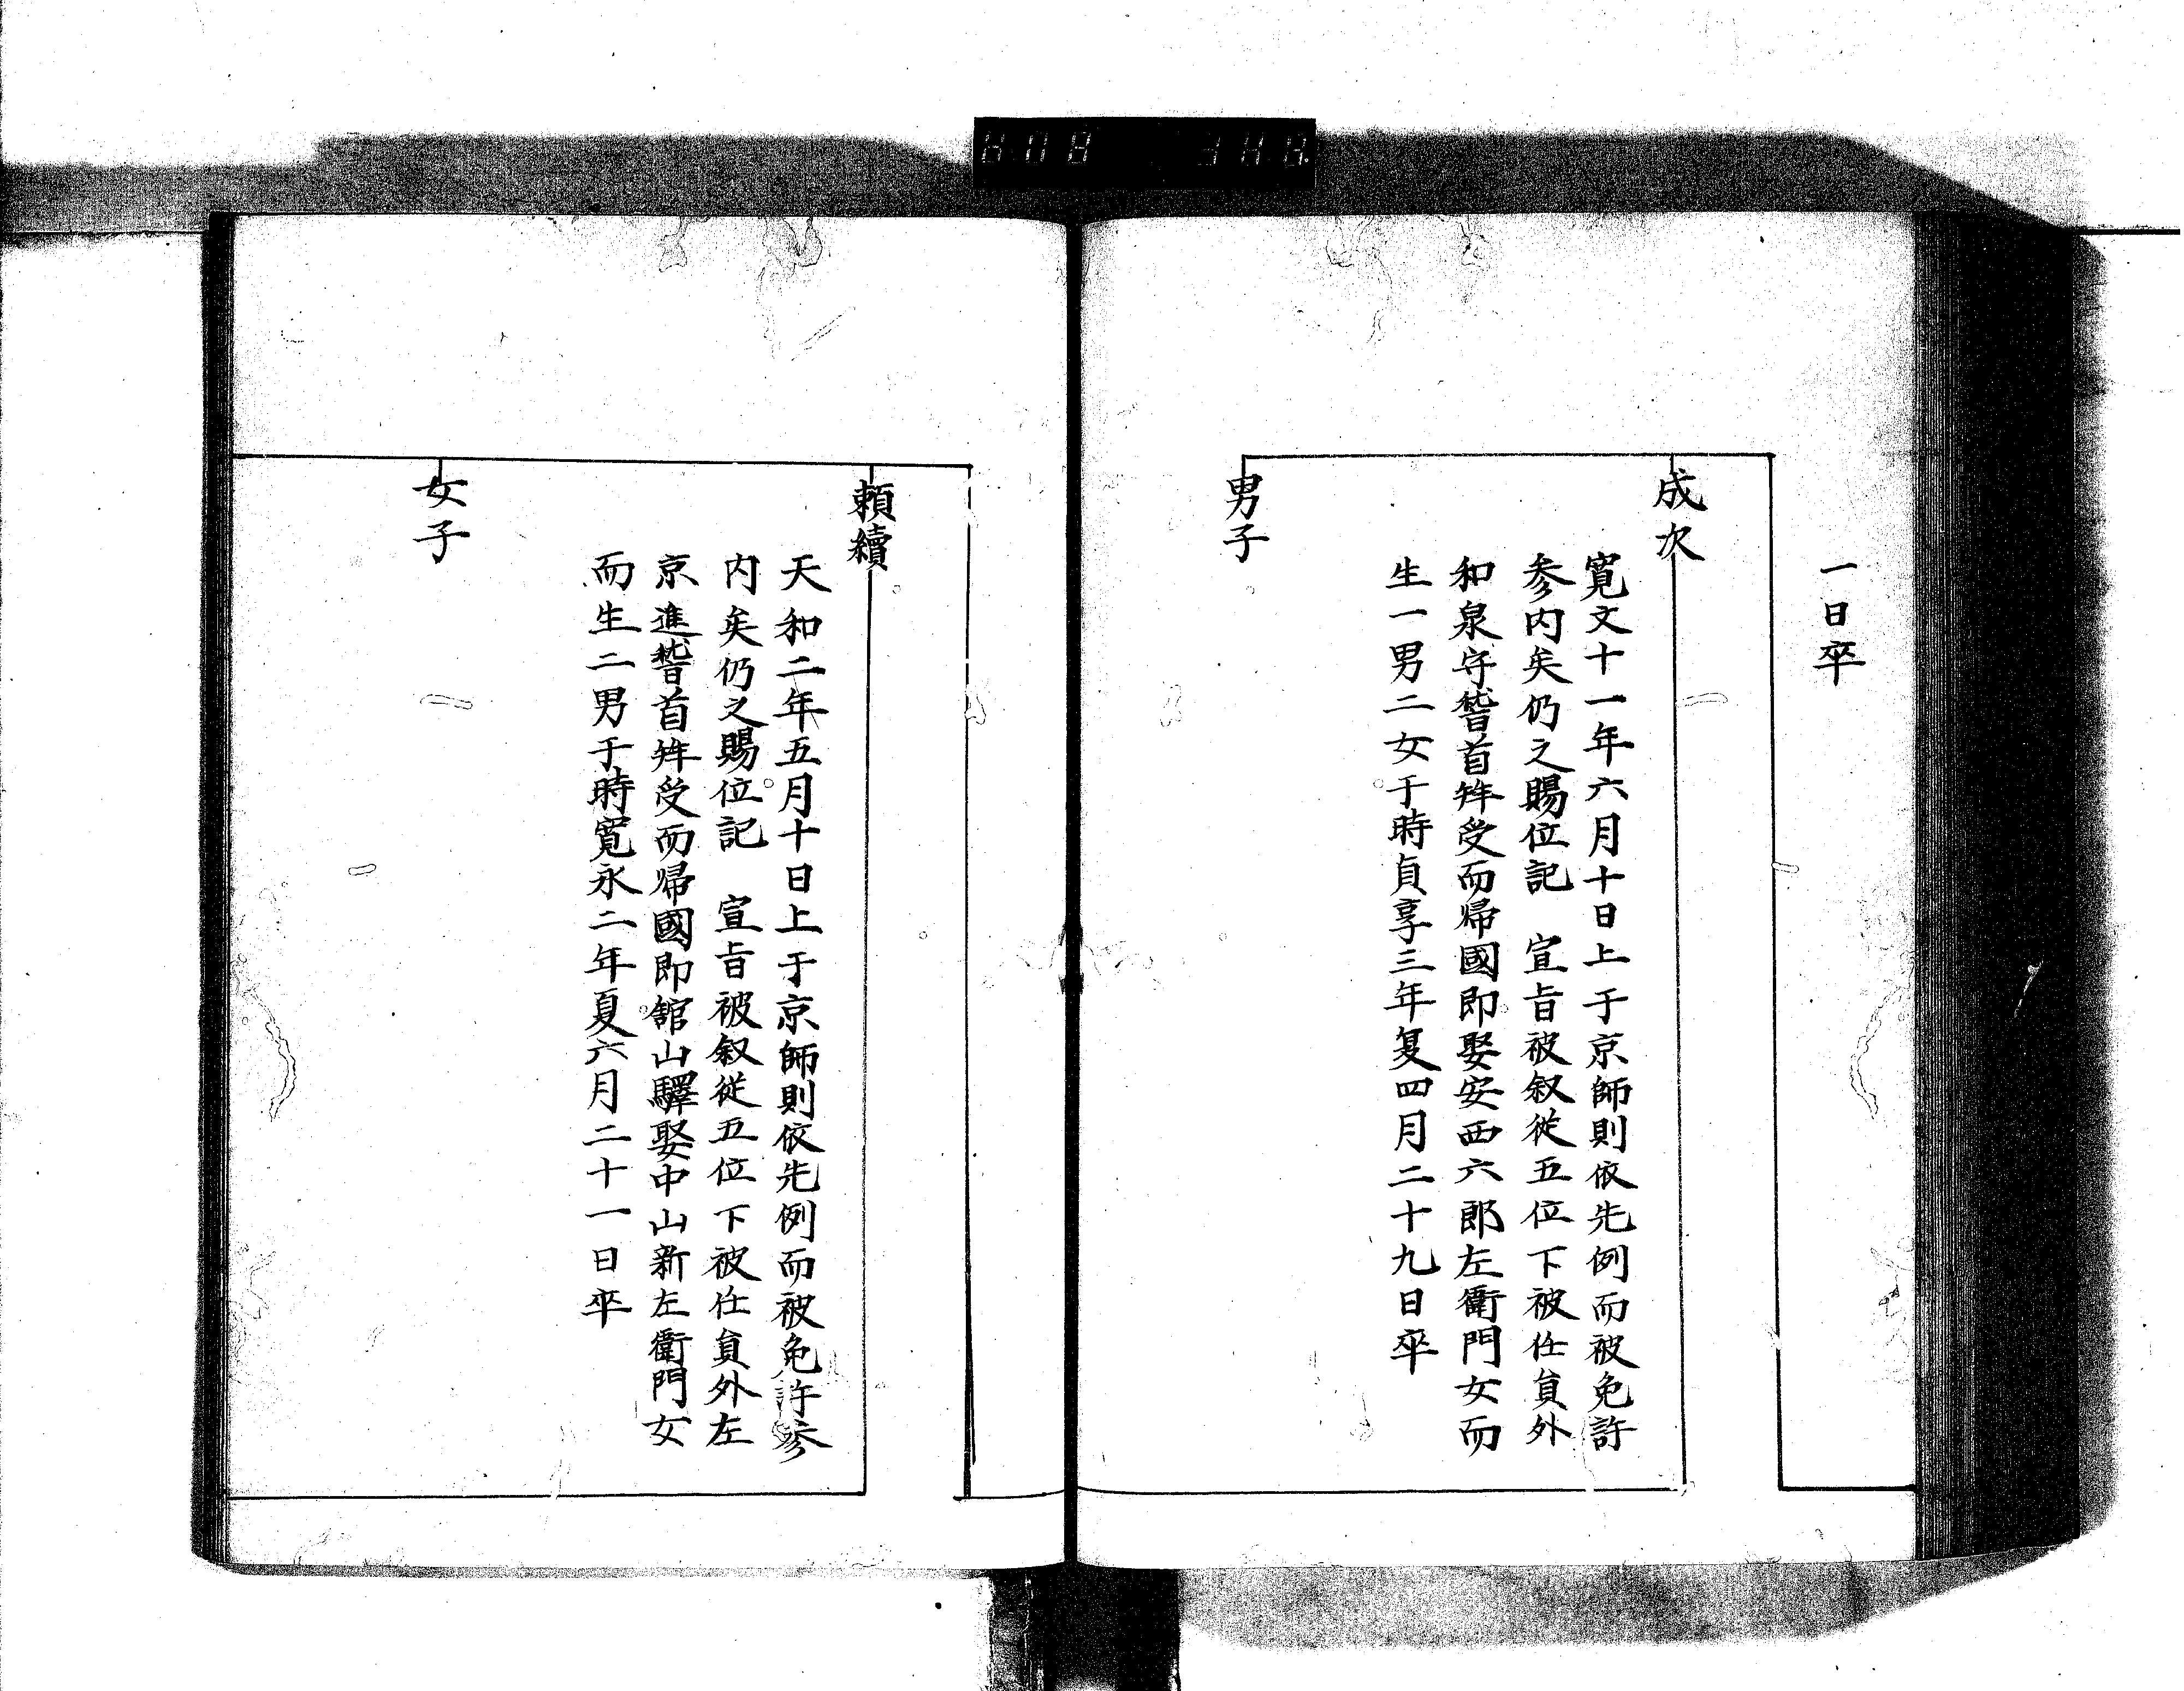 一日卒
成次
寛文十一年六月十日上于京師則依先例而被免許
参内矣仍之賜位記　宣旨被叙従五位下被任員外
和泉守稽首拜受而帰國即娶安西六郎左衛門女而
生一男二女于時貞享三年夏四月二十九日卒
男子
頼續
天和二年五月十日上于京師則依先例而被免許参
内矣仍之賜位記　宣旨被叙従五位下被任員外左
京進稽首拜受而帰國即舘山驛娶中山新左衛門女
而生二男于時寛永二年夏六月二十一日卒
女子